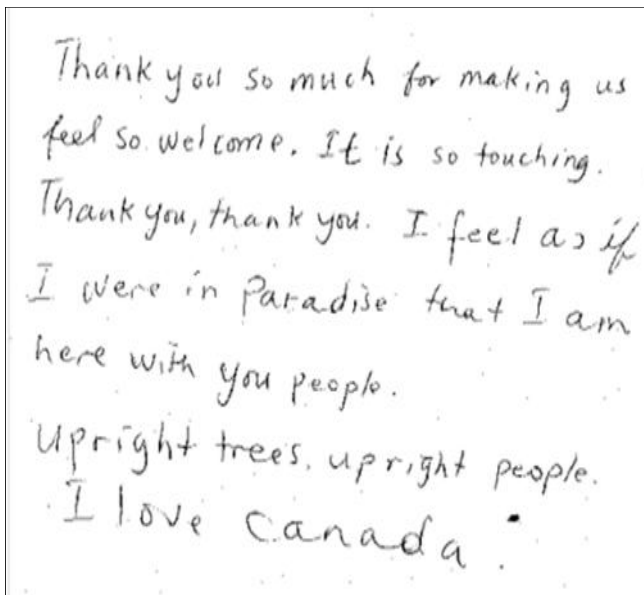 Thank you so much for making us
feel so welcome. It is so touching.
Thank you, thank you. I feel as if
I were in Paradise that I am
here with you people.
Upright trees, upright people.
I love Canada.